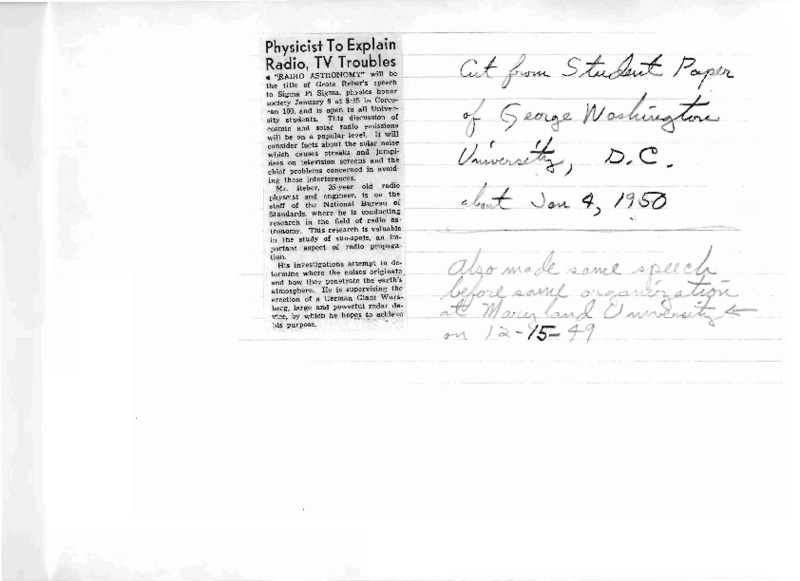 Physicist To Explain
Radio, TV Troubles
● "RADIO ASTRONOMY" will be
the title of Grote Reber's speech
to Sigma Pi Sigma, physics honor
society January 9 at 8:15 in Corco-
ran 100, and is open to all Univer-
sity students. This discussion of
cosmic and solar radio emissions
will be on a popular level. It will
consider facts about the solar noise
which causes streaks and jumpi-
ness on television screens and the
chief problems concerned in avoid-
ing these interferences.
Mr. Reber, 35-year old radio
physicist and engineer, is on the
staff of the National Bureau of
Standards, where he is conducting
research in the field of radio as-
tronomy. This research is valuable
in the study of sun-spots, an im-
portant aspect of radio propaga-
tion.
His investigations attempt to de-
termine where the noises originate
and how they penetrate the earth's
atmosphere. He is supervising the
erection of a German Giant Wurs-
berg, large and powerful radar de-
vice, by which he hopes to achieve
his purpose.
Cut from Student Paper
of George Washington
University, D.C.
about Jan 4, 1950
Also made same speech
before same organization
at Maryland University ←
on 12-15-49